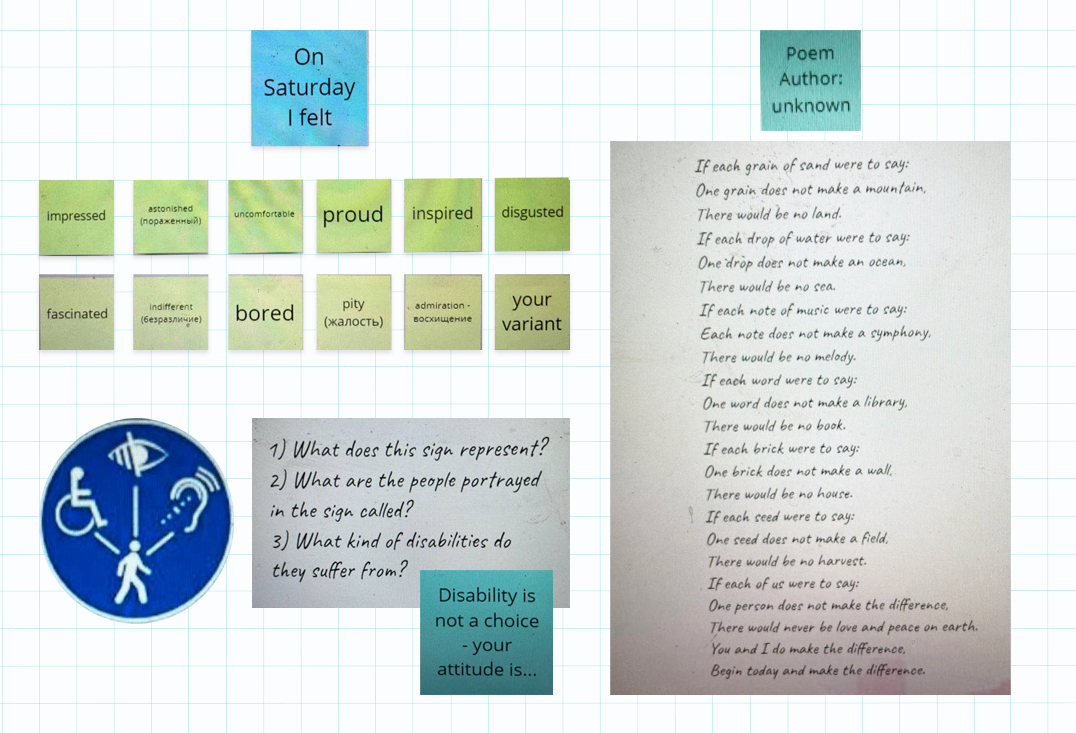 On
Saturday
I felt
impressed
astonished
(пораженный)
uncomfortable
proud
inspired
disgusted
fascinated
indifferent
(безразличие)
bored
pity
(жалость)
admiration -
восхищение
your
variant
1) What does this sign represent?
2) What are the people portrayed
in the sign called?
3) What kind of disabilities do
they suffer from?
Disability is
not a choice
- your
attitude is...
Poem
Author:
unknown
If each grain of sand were to say:
One grain does not make a mountain,
There would be no land.
If each drop of water were to say:
One drop does not make an ocean,
There would be no sea.
If each note of music were to say:
Each note does not make a symphony,
There would be no melody.
If each word were to say:
One word does not make a library,
There would be no book.
If each brick were to say:
One brick does not make a wall,
There would be no house.
If each seed were to say:
One seed does not make a field,
There would be no harvest.
If each of us were to say:
One person does not make the difference,
There would never be love and peace on earth.
You and I do make the difference,
Begin today and make the difference.